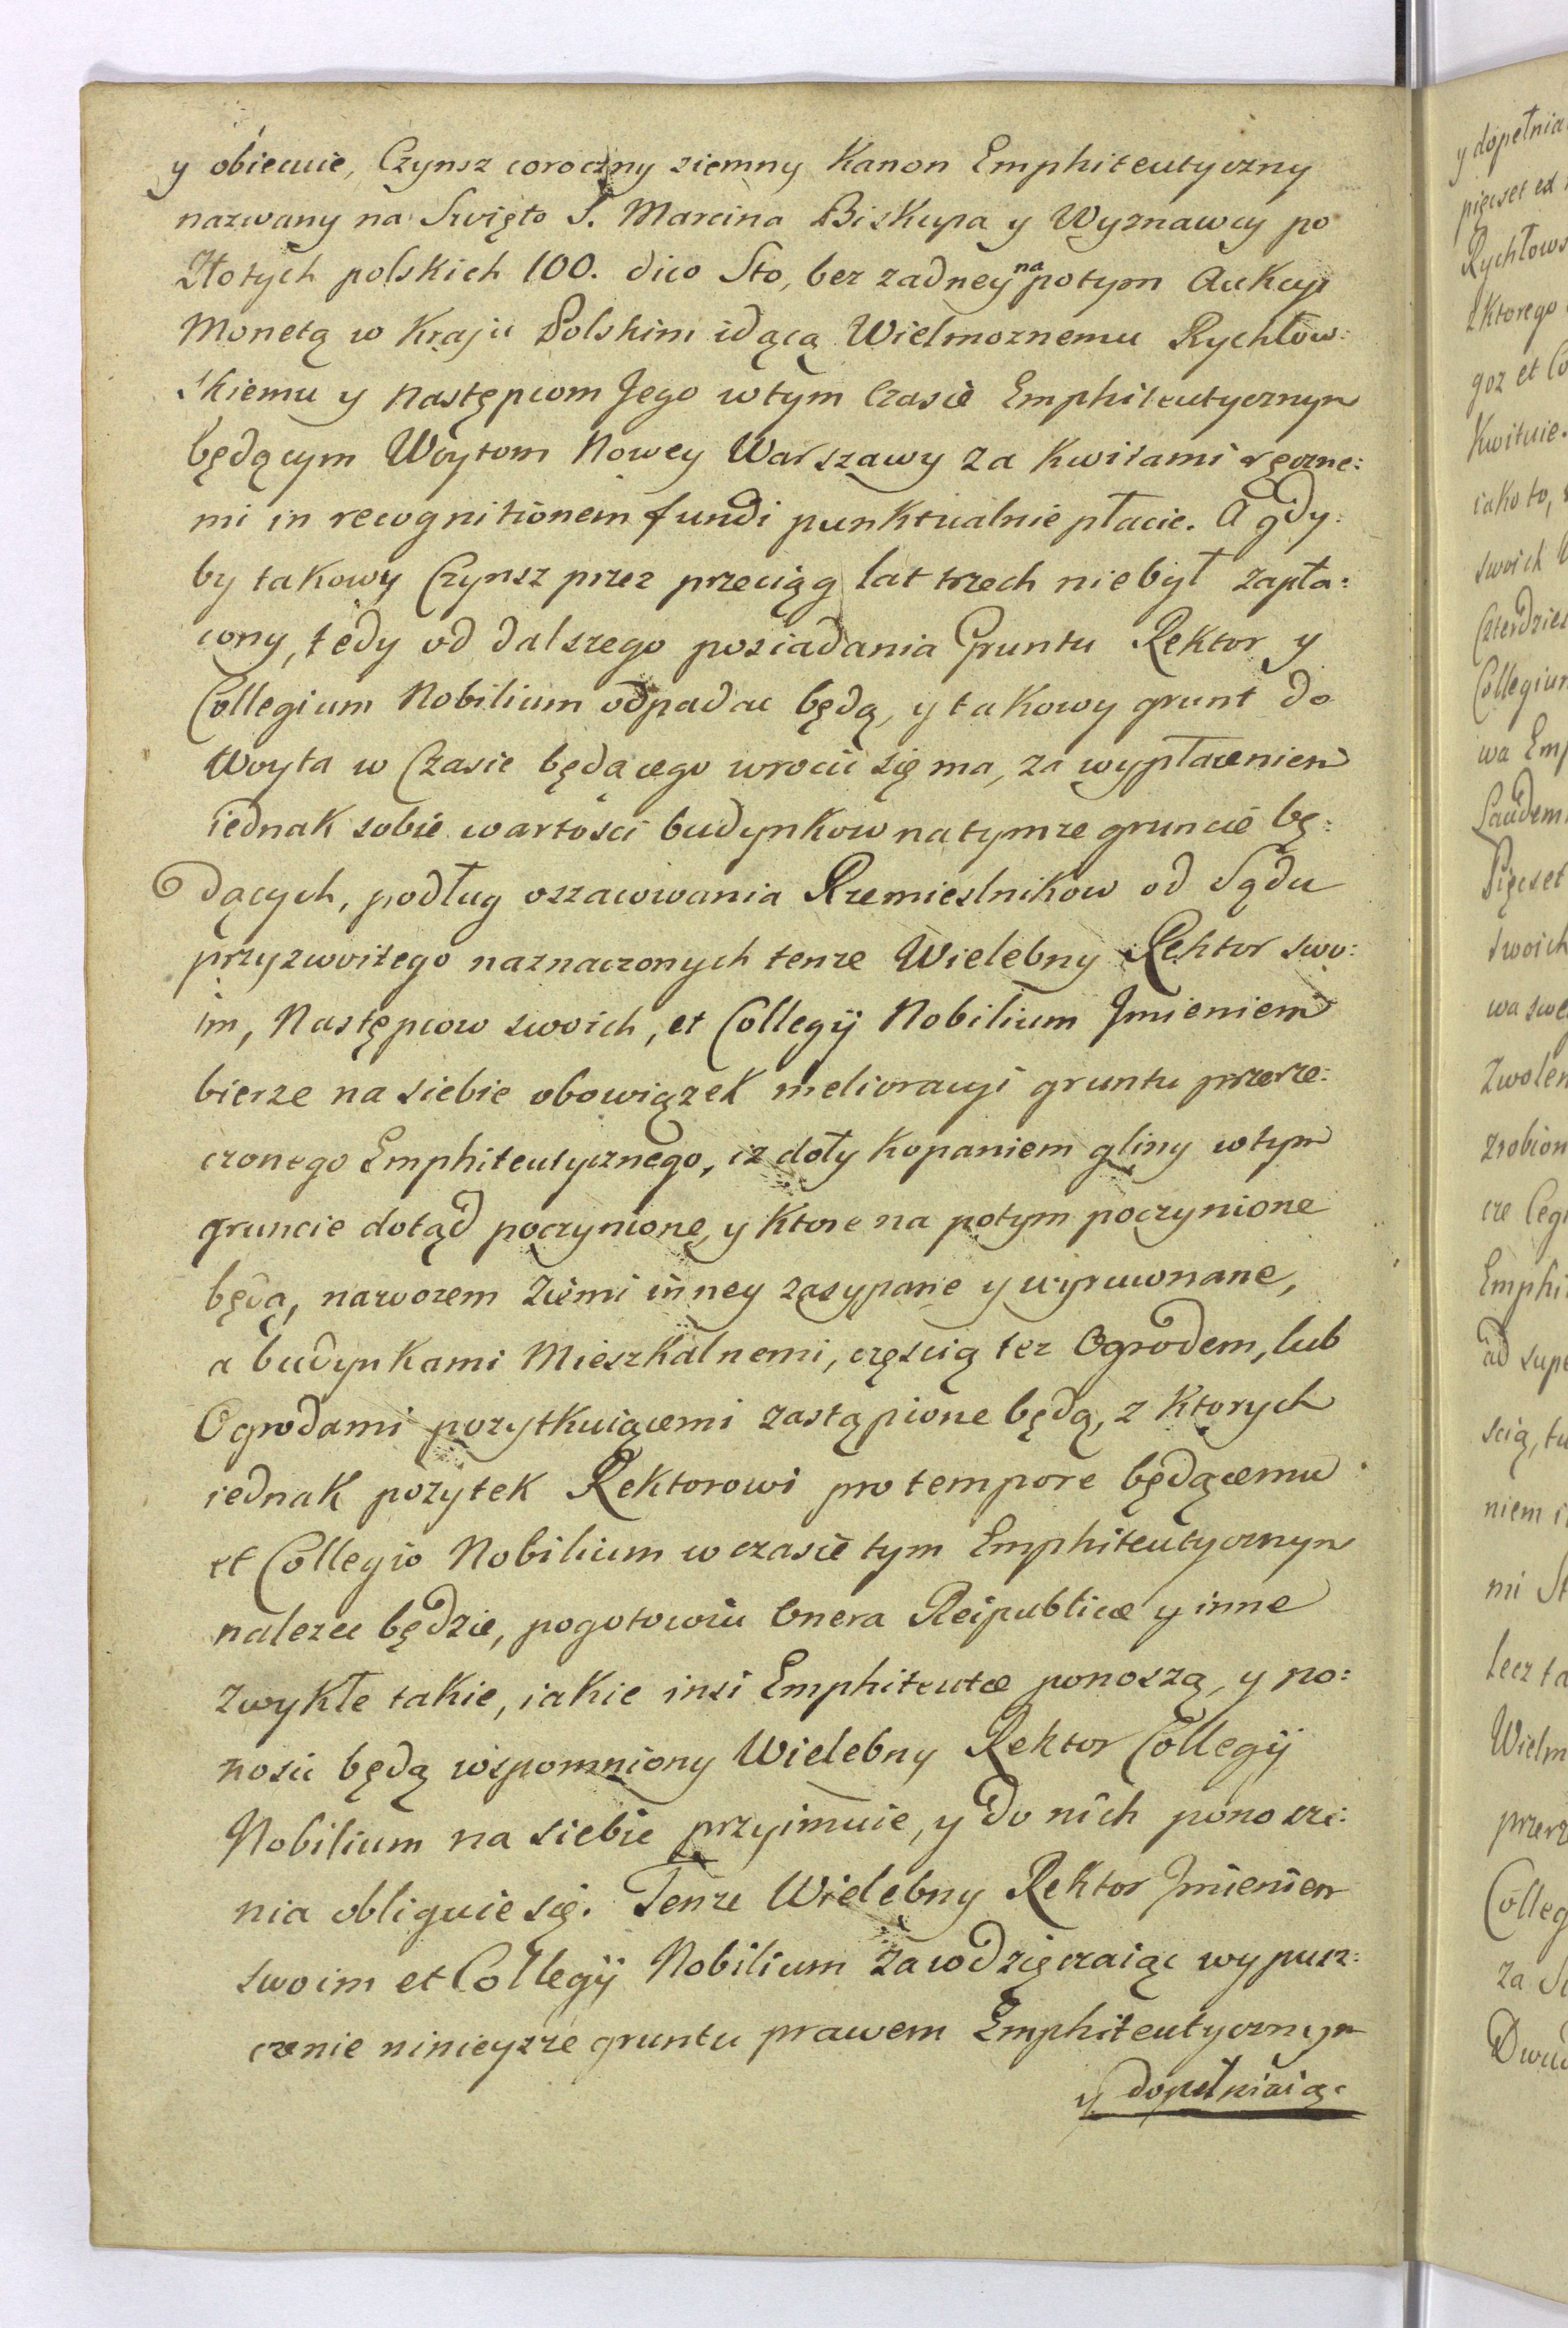 y obiecuie, Czynsz coroczny ziemny Kanon Emphiteutyczny
nazwany na Swięto S. Marcina Biskupa y Wyznawcy po
Złotych polskich 100. dico Sto, bez zadney na potym Aukcyi
Monetą w Kraju Polskim idącą Wielmoznemu Rychłow:
skiemu y Następcom Jego w tym Czasie Emphiteutycznym
będącym Woytom Nowey Warszawy za Kwitami ręczne:
mi in recognitionem fundi punktualnie płacic. A gdy:
by takowy Czynsz przez przeciąg lat trzech nie był zapła:
cony, tedy od dalszego posiadania Gruntu Rektor y
Collegium Nobilium odpadac będą, y takowy grunt do
Woyta w Czasie będącego wrocic się ma, za wypłaceniem
iednak sobie wartosci budynkow na tymze gruncie bę:
dących, podług oszacowania Rzemieslnikow od Sądu
przyzwoitego naznaczonych tenze Wielebny Rektor swo:
im, Następcow swoich, et Collegij Nobilium Jmieniem
bierze na siebie obowiązek melioracyi gruntu przerze:
czonego Emphiteutycznego, iz doły kopaniem gliny w tym
gruncie dotąd poczynione, y ktore na potym poczynione
będą, nawozem ziemi inney zasypane y wyrownane,
a budynkami Mieszkalnemi, częscią tez Ogrodem, lub
Ogrodami pozytkuiącemi zastąpione będą, z ktorych
iednak pozytek Rektorowi pro tempore będącemu
et Collegio Nobilium w czasie tym Emphiteutycznym
nalezec będzie, pogotowiu Onera Reipublicæ y inne
zwykłe takie, iakie insi Emphiteutæ ponoszą, y po:
nosic będą wspomniony Wielebny Rektor Collegij
Nobilium na siebie przyimuie, y do nich ponosze:
nia obliguie się. Tenze Wielebny Rektor Jmieniem
swoim et Collegij Nobilium zawdzięczaiąc wypusz:
czenie ninieysze gruntu prawem Emphiteutycznym
y dopełniaiąc
y dopełnia
pięcset
Rychłows
z ktorego
goz et Co
Kwituie.
iako to,
swoich
Czterdzies
Collegium
wa Emp
Laudem
Pięcset
swoich
wa swe
Zwolen
zrobion
cze Cegi
Emphi
ad supe
scią, tu
niem i
mi St
lecz ta
Wielm
przerz
Colleg
za
Dwud